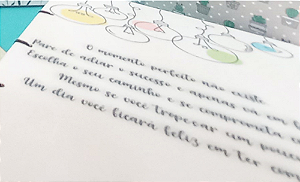 O momento perfeito não existe.
Pare de adiar o sucesso e apenas vá em
Escolha o seu caminho e se comprometa
Mesmo se você tropeçar um pouco
Um dia você ficará feliz em ter